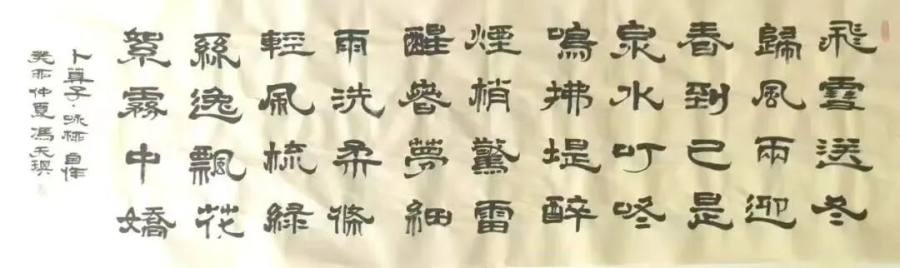 飛雪送冬
歸風雨迎
春到已是
泉水叮咚
鳴拂堤醉
煙梢驚雷
醒夢細
雨洗柔條
輕風梳綠
絲逸飄花
絮霧中嬌
卜算子·咏柳 自作
癸卯仲夏 馮天